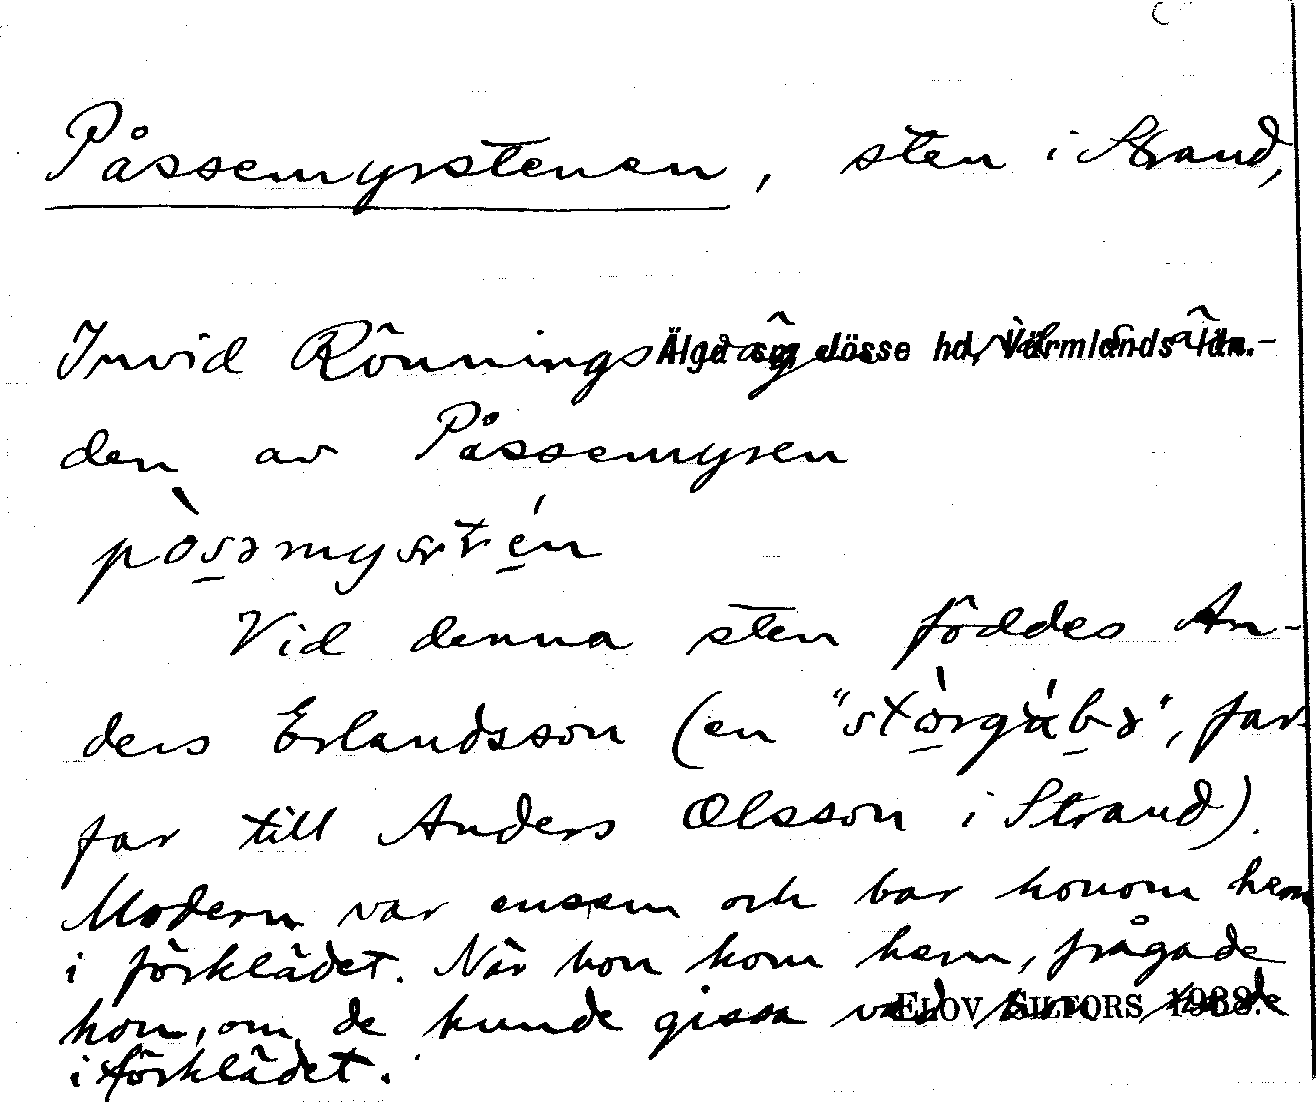 Påssemyrstenen, sten i Strand,
Älgå sn Jösse hd, Värmlands län.
Invid Rönningsvägen, vid S än-
den av Påssemyren
Vid denna sten föddes An-
ders Erlandsson (en far-
far till Anders Olsson i Strand).
Modern var ensam och bar honom hem
i förklädet. När hon kom hem, frågade
hon, om de kunde gissa vad hon hade
ELOV SILFORS 1938.
i förklädet.